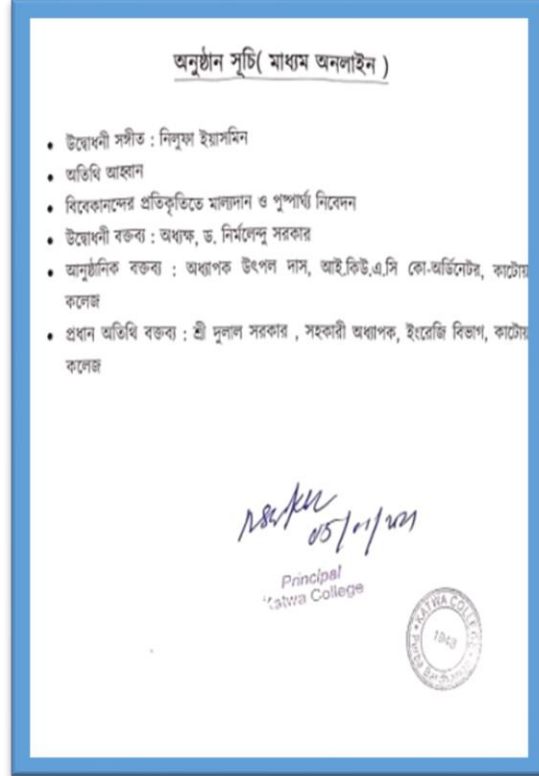 অনুষ্ঠান সূচি( মাধ্যম অনলাইন )
• উদ্বোধনী সঙ্গীত : নিলুফা ইয়াসমিন
• অতিথি আহ্বান
• বিবেকানন্দের প্রতিকৃতিতে মাল্যদান ও পুষ্পার্ঘ্য নিবেদন
• উদ্বোধনী বক্তব্য : অধ্যক্ষ, ড. নির্মলেন্দু সরকার
• আনুষ্ঠানিক বক্তব্য : অধ্যাপক উৎপল দাস, আই.কিউ.এ.সি কো-অর্ডিনেটর, কাটোয়া
কলেজ
• প্রধান অতিথি বক্তব্য : শ্রী দুলাল সরকার , সহকারী অধ্যাপক, ইংরেজি বিভাগ, কাটোয়া
কলেজ
Principal
Katwa College
KATWA COLLEGE
1948
Purba Bardhaman